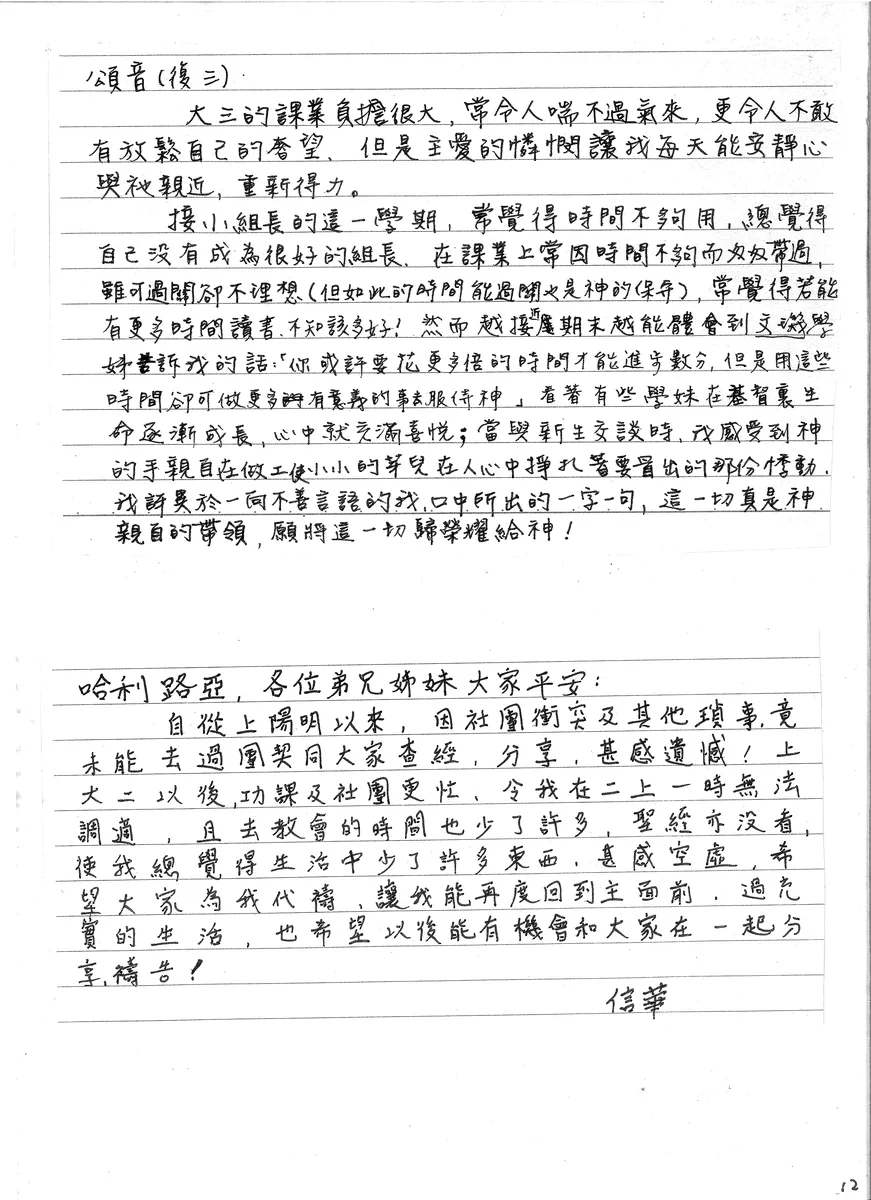 頌音(復三)
大三的課業負擔很大，常令人喘不過氣來，更令人不敢
有放鬆自己的奢望．但是主愛的憐憫讓我每天能安靜心
與祂親近，重新得力。
接小組長的這一學期，常覺得時間不夠用，總覺得
自己沒有成為很好的組長．在課業上常因時間不夠而匆匆帶過，
雖可過關卻不理想(但如此的時間能過關也是神的保守)，常覺得若能
有更多時間讀書．不知該多好！然而越接近期末越能體會到文璣學
姊告訴我的話：「你或許要花更多倍的時間才能進步數分，但是用這些
時間卻可做更多有意義的事去服侍神」看著有些學妹在基智裏生
命逐漸成長，心中就充滿喜悅；當與新生交談時．我感受到神
的手親自在做工使小小的芽兒在人心中掙扎著要冒出的那份悸動．
我訝異於一向不善言語的我，口中所出的一字一句，這一切真是神
親自的帶領，願將這一切歸榮耀給神！
哈利路亞，各位弟兄姊妹大家平安：
自從上陽明以來，因社團衝突及其他瑣事，竟
未能去過團契同大家查經，分享，甚感遺憾！上
大二以後，功課及社團更忙、令我在二上一時無法
調適，且去教會的時間也少了許多，聖經亦没看，
使我總覺得生活中少了許多東西，甚感空虛，希
望大家為我代禱，讓我能再度回到主面前．過充
實的生活，也希望以後能有機會和大家在一起分
享，禱告！
信華
12